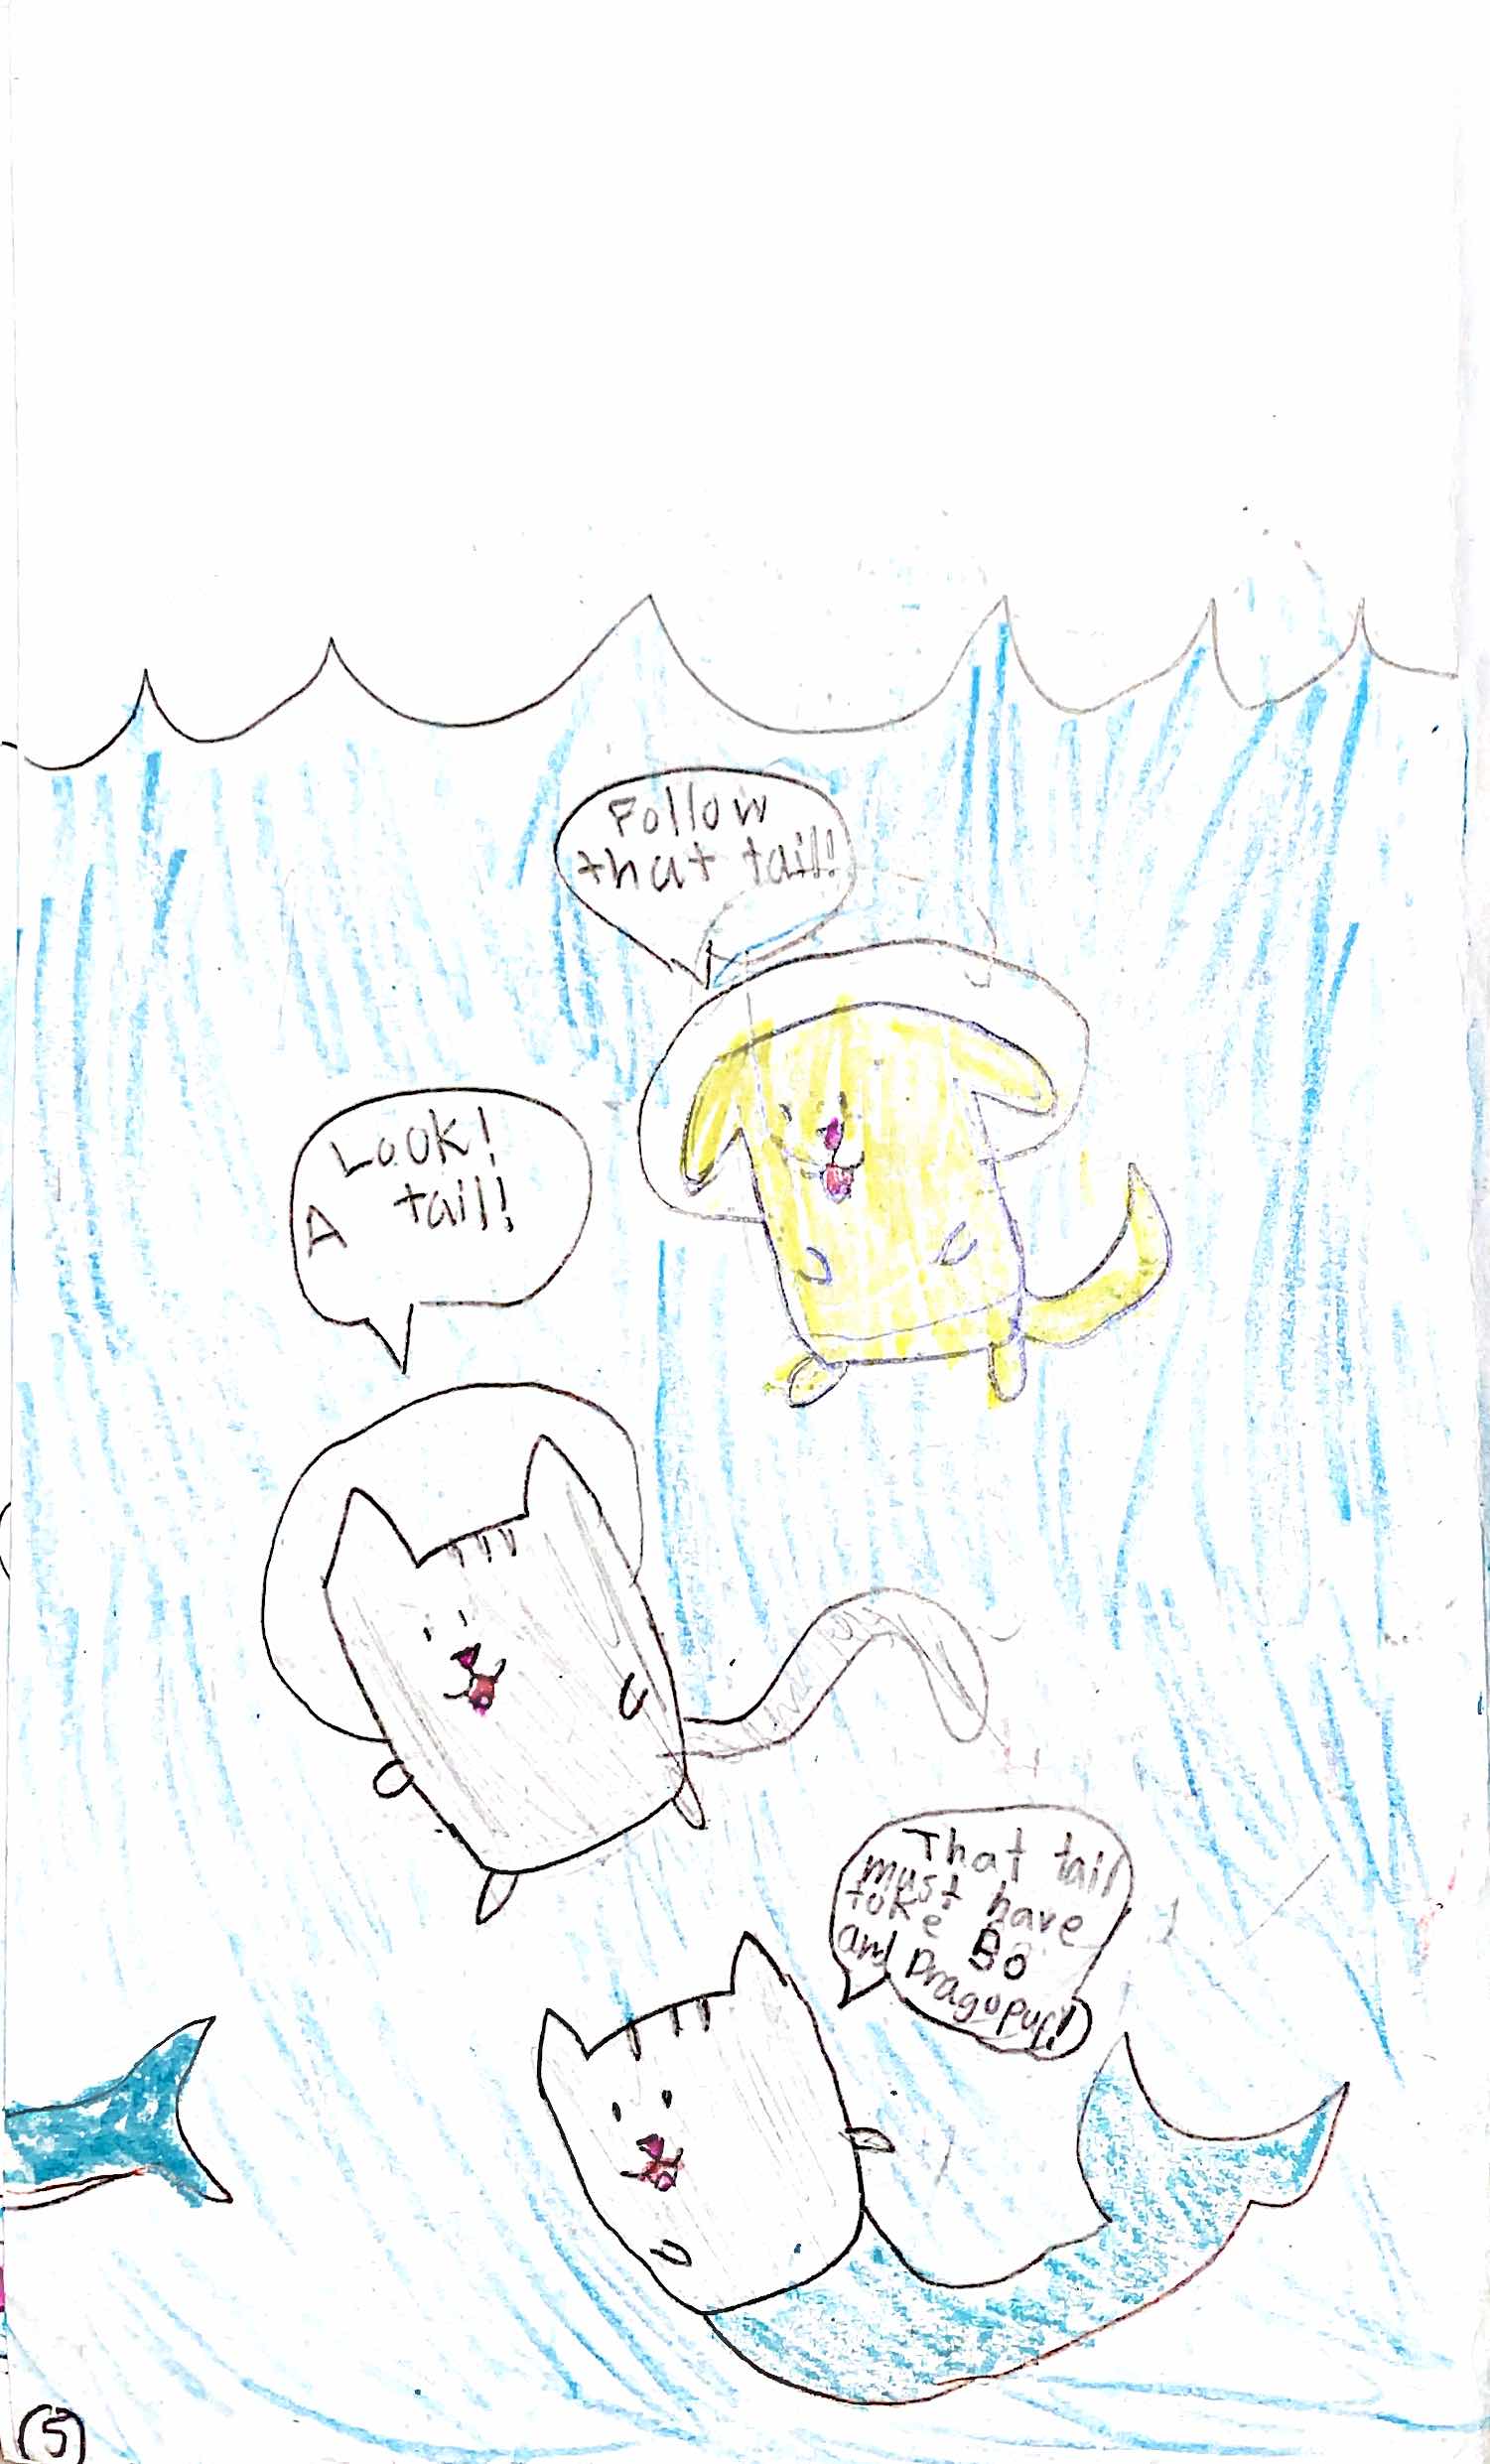 Follow
that tail!
Look!
A tail!
That tail
must have
toke Bo
and Dragopuf!
5